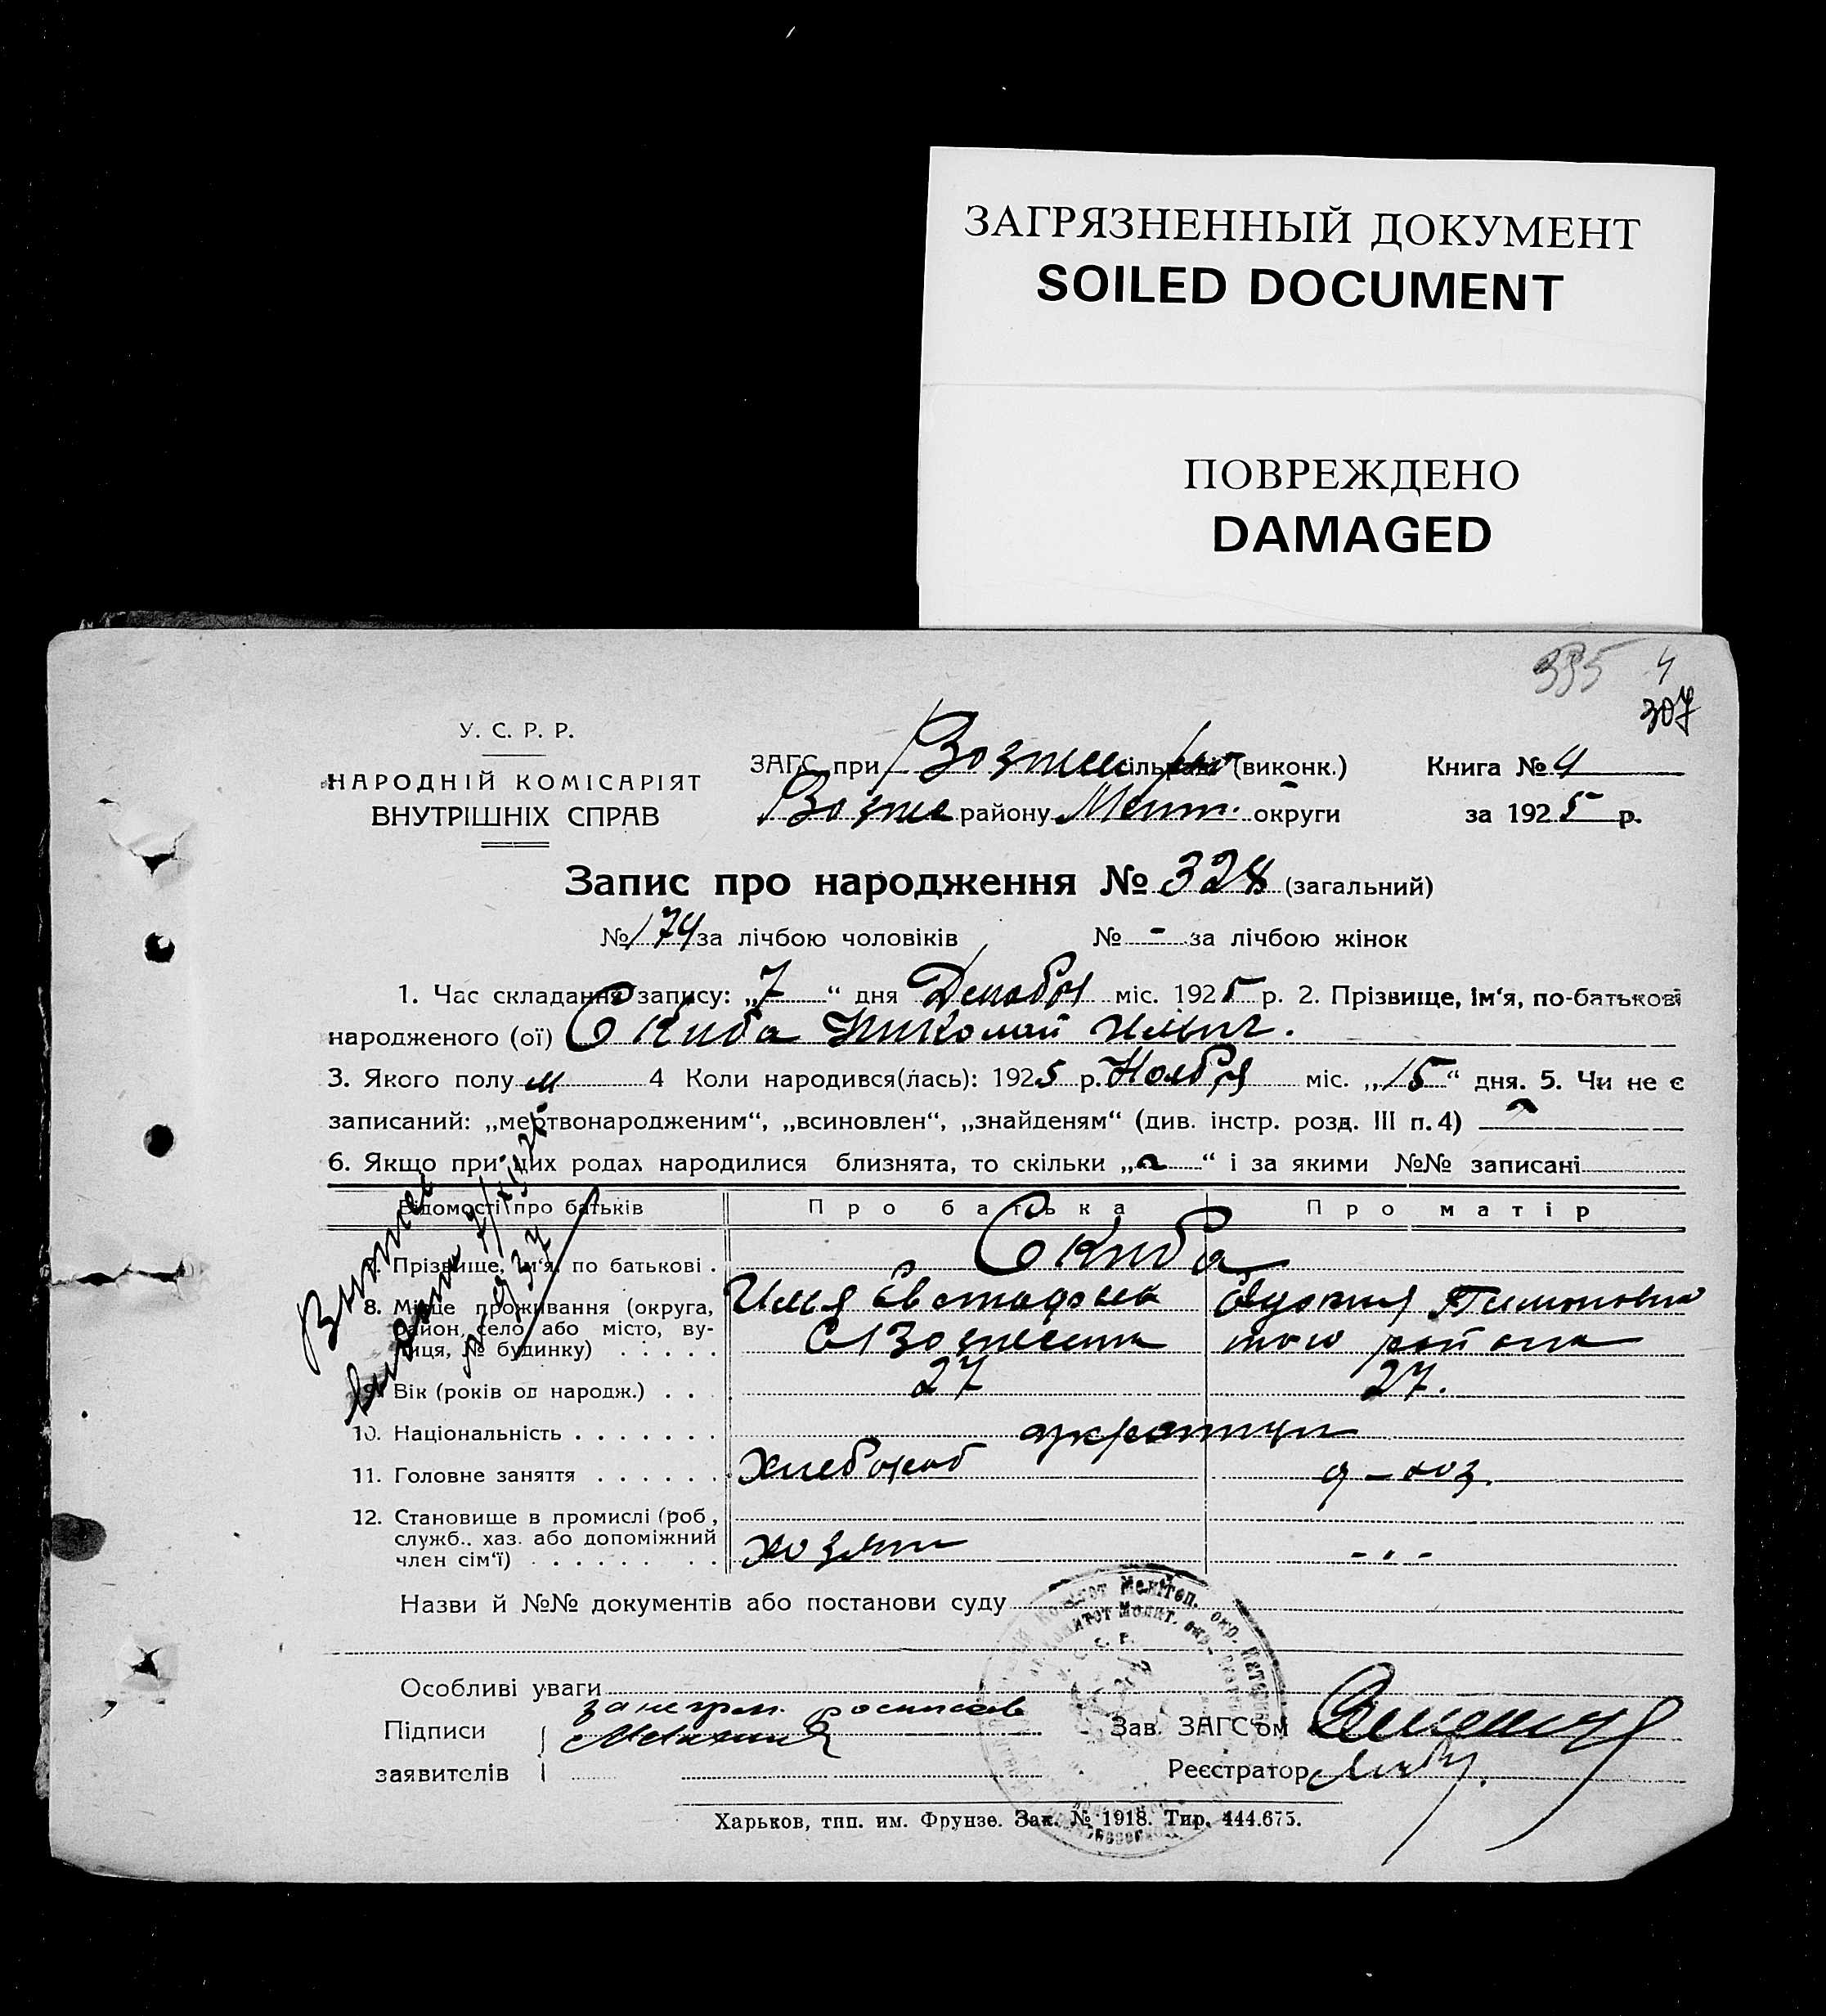 ЗАГРЯЗНЕННЫЙ ДОКУМЕНТ
SOILED DOCUMENT
ПОВРЕЖДЕНО
DAMAGED
335 4
307
У. С. Р. Р.
НАРОДНІЙ КОМІСАРІЯТ
ВНУТРІШНІХ СПРАВ
ЗАГС при сільраді (виконк.) Книга № 4
району Мелит. округи за 1925 р.
Запис про народження № 328 (загальний)
№ 174 за лічбою чоловіків № - за лічбою жінок
1. Час складання запису: „7“ дня Декабря міс. 1925 р. 2. Прізвище, ім‘я, по-батькові
народженого (ої) Скиба Николай Ильич.
3. Якого полу м 4 Коли народився(лась): 1925 р. Ноября міс. „15“ дня. 5. Чи не є
записаний: „мертвонародженим“, „всиновлен“, „знайденям“ (див. інстр. розд. III п. 4)
6. Якщо при цих родах народилися близнята, то скільки „ “ і за якими №№ записані
Відомості про батьків Про батька Про матір
7. Прізвище, ім‘я, по батькові . Скиба
Илья Евстафьев Тимоновна
8. Місце проживання (округа,
район, село або місто, ву-
лиця, № будинку) . . . . . того района
9. Вік (років од народж.) . . . 27 27.
10. Національність . . . . . . . украинцы
11. Головне заняття . . . . . . хлебороб д-хоз.
12. Становище в промислі (роб.,
служб., хаз. або допоміжний
член сім‘ї) . . . . . . . . хозяин - . -
Назви й №№ документів або постанови суду
Особливі уваги
Підписи
заявителів
Зав. ЗАГС‘ом
Реєстратор
Харьков, тип. им. Фрунзе. Зак. № 1918. Тир. 444.675.